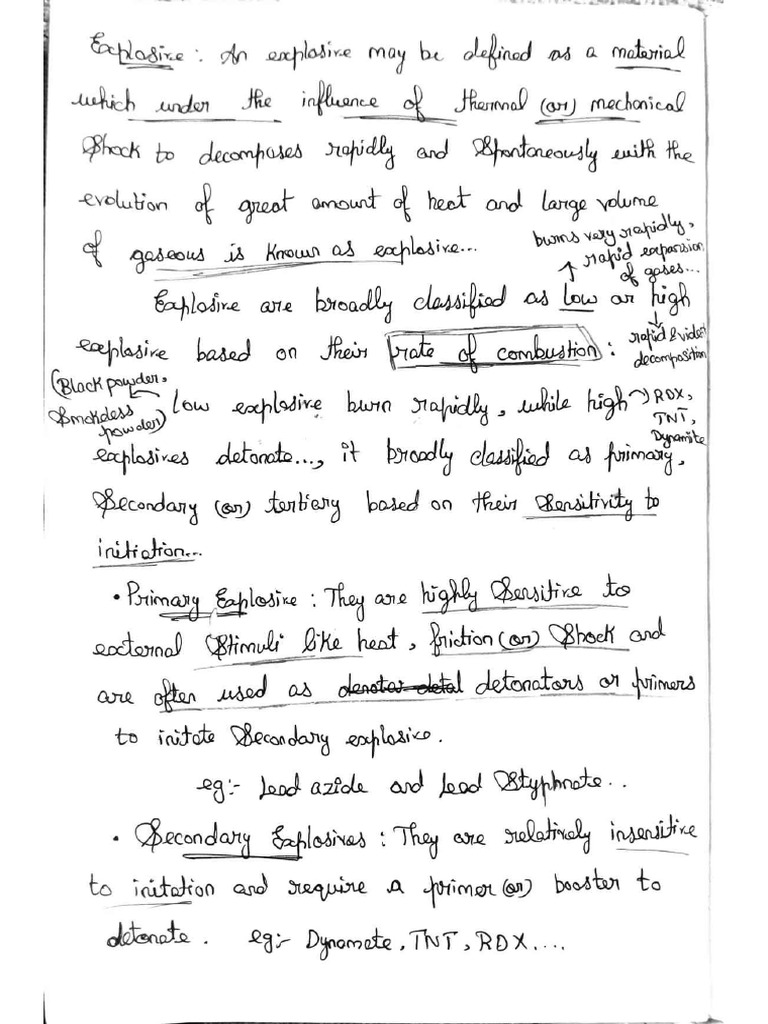 Explosive : An explosive may be defined as a material
which under the influence of thermal (or) mechanical
Shock to decomposes rapidly and Spontaneously with the
evolution of great amount of heat and large volume
of gaseous is known as explosive...
burns very rapidly,
rapid expansion
of gases...
Explosive are broadly classified as low or high
explosive based on their rate of combustion :
rapid & violent
decomposition
(Black powder,
Smokeless
powder)
low explosive burn rapidly, while high
RDX,
TNT,
Dynamite
explosives detonate..., it broadly classified as primary,
Secondary (or) tertiary based on their Sensitivity to
initiation...
• Primary Explosive : They are highly Sensitive to
external Stimuli like heat, friction (or) Shock and
are often used as detonators or primers
to initate Secondary explosive.
eg:- Lead azide and Lead Styphnate..
• Secondary Explosives : They are relatively insensitive
to initation and require a primer (or) booster to
detonate. eg:- Dynamete, TNT, RDX....